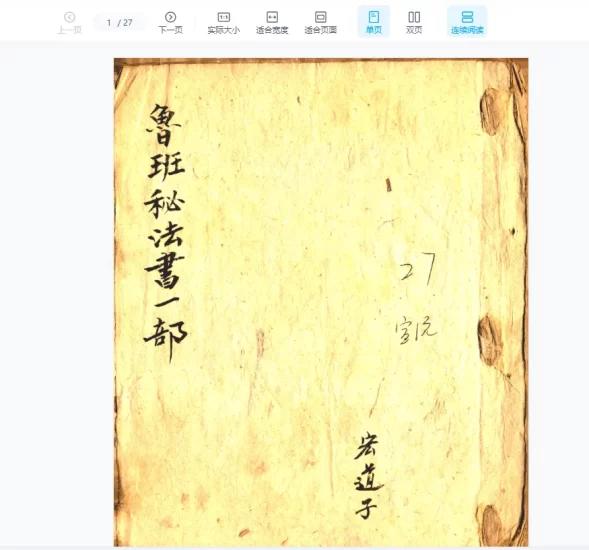 上一页
1 / 27
下一页
实际大小
适合宽度
适合页面
单页
双页
连续阅读
魯班秘法書一部
27
宏道子